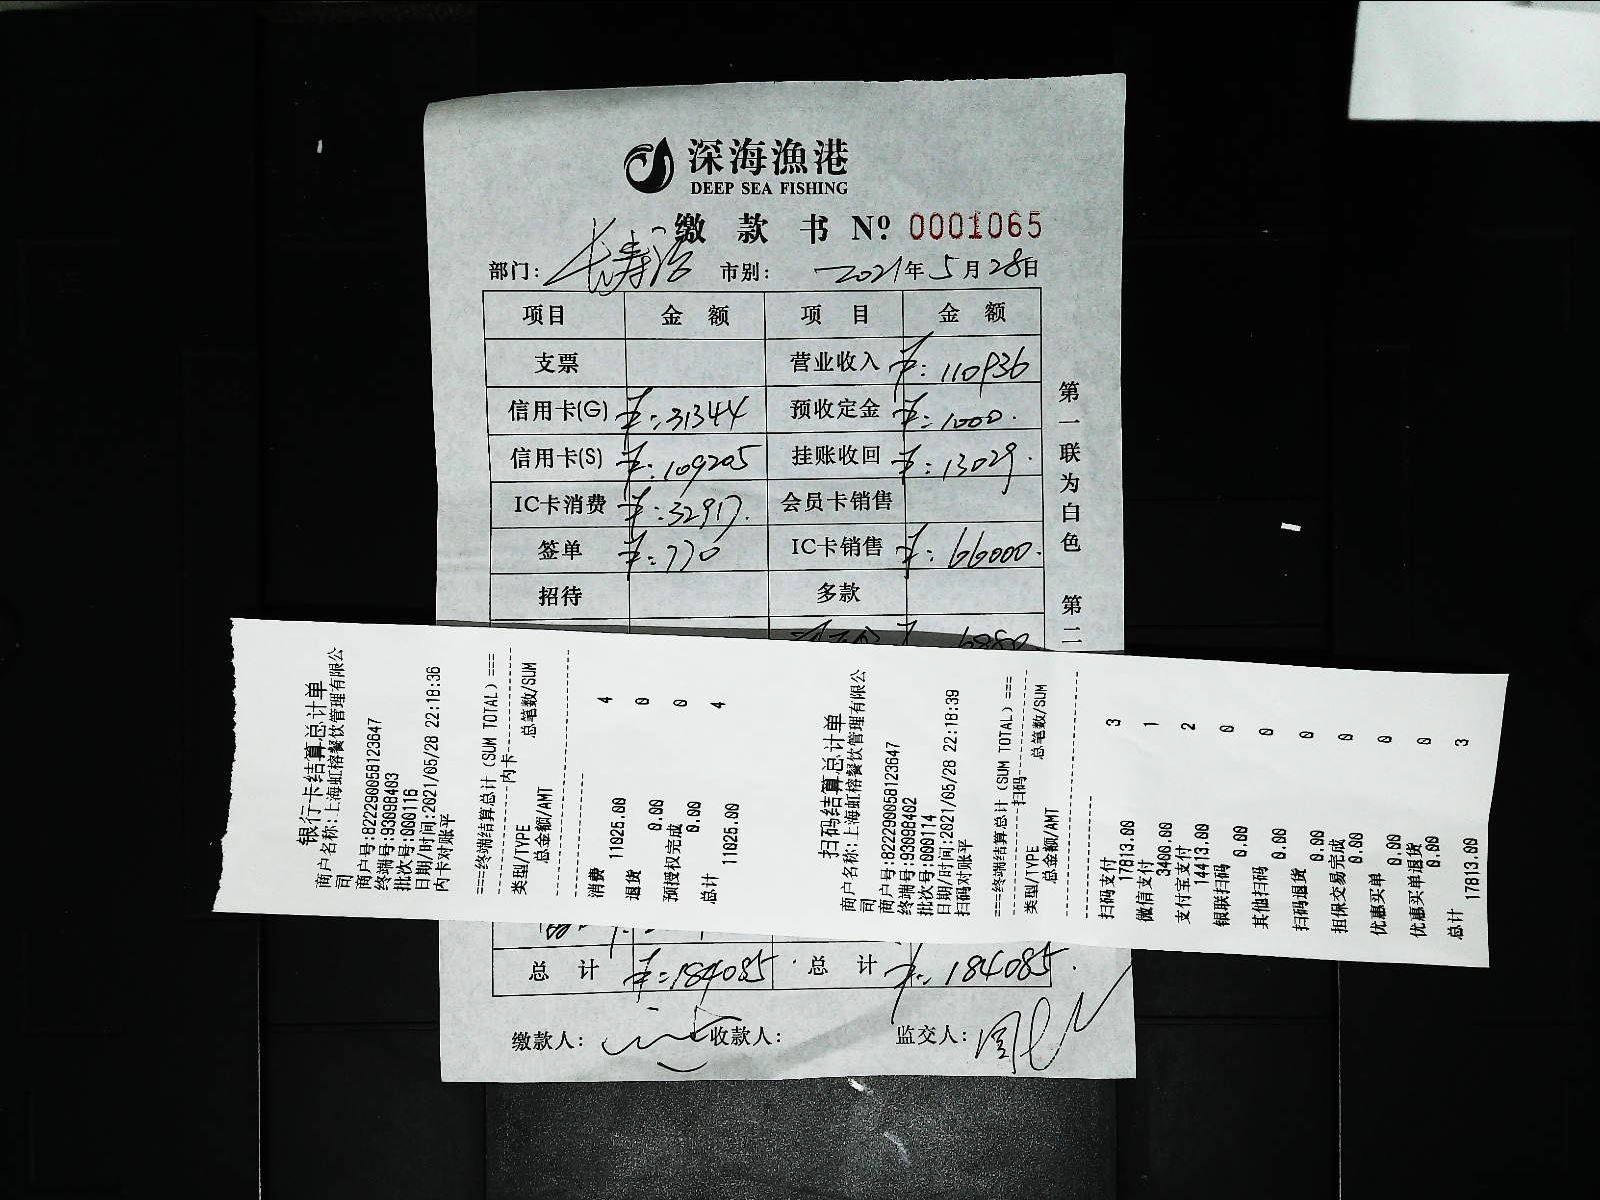 深海漁港
DEEP SEA FISHING
缴 款 书 Nº 0001065
部门: 长寿路 市别: 2021年5月28日
项目 金 额 项 目 金 额
支票 营业收入 ¥:110936
信用卡(G) ¥:31344 预收定金 ¥:1000.
信用卡(S) ¥:109205 挂账收回 ¥:13029.
IC卡消费 ¥:32917. 会员卡销售
签单 ¥:770 IC卡销售 ¥:66000.
招待 多款
总 计 ¥:184085 总 计 ¥:184085.
缴款人: 收款人: 监交人:
第一联为白色 第二
银行卡结算总计单
商户名称:上海虹榕餐饮管理有限公
司
商户号:822290058123647
终端号:93098403
批次号:000116
日期/时间:2021/05/28 22:18:36
内卡对账平
===终端结算总计(SUM TOTAL)===
内卡
类型/TYPE 总笔数/SUM
总金额/AMT
消费 4
11025.00
退货 0
0.00
预授权完成 0
0.00
总计 4
11025.00
扫码结算总计单
商户名称:上海虹榕餐饮管理有限公
司
商户号:822290058123647
终端号:93098402
批次号:000114
日期/时间:2021/05/28 22:18:39
扫码对账平
===终端结算总计(SUM TOTAL)===
扫码
类型/TYPE 总笔数/SUM
总金额/AMT
扫码支付 3
17813.00
微信支付 1
3400.00
支付宝支付 2
14413.00
银联扫码 0
0.00
其他扫码 0
0.00
扫码退货 0
0.00
担保交易完成 0
0.00
优惠买单 0
0.00
优惠买单退货 0
0.00
总计 3
17813.00